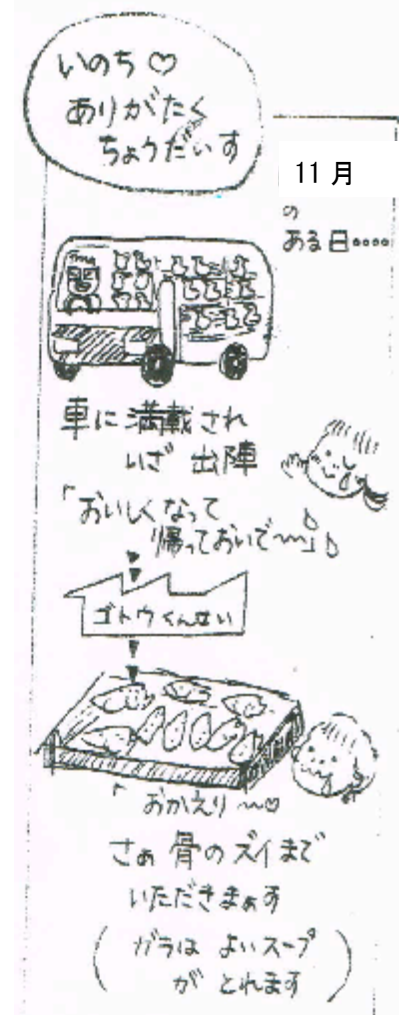 いのち♡
ありがたく
ちょうだいす
11月
の
ある日‥‥
車に満載され
いざ 出陣
「おいしくなって
帰っておいで〜」♪
ゴトウくんせい
「おかえり〜♡
さぁ 骨のズイまで
いただきまぁす
(ガラは よいスープ
が とれます)